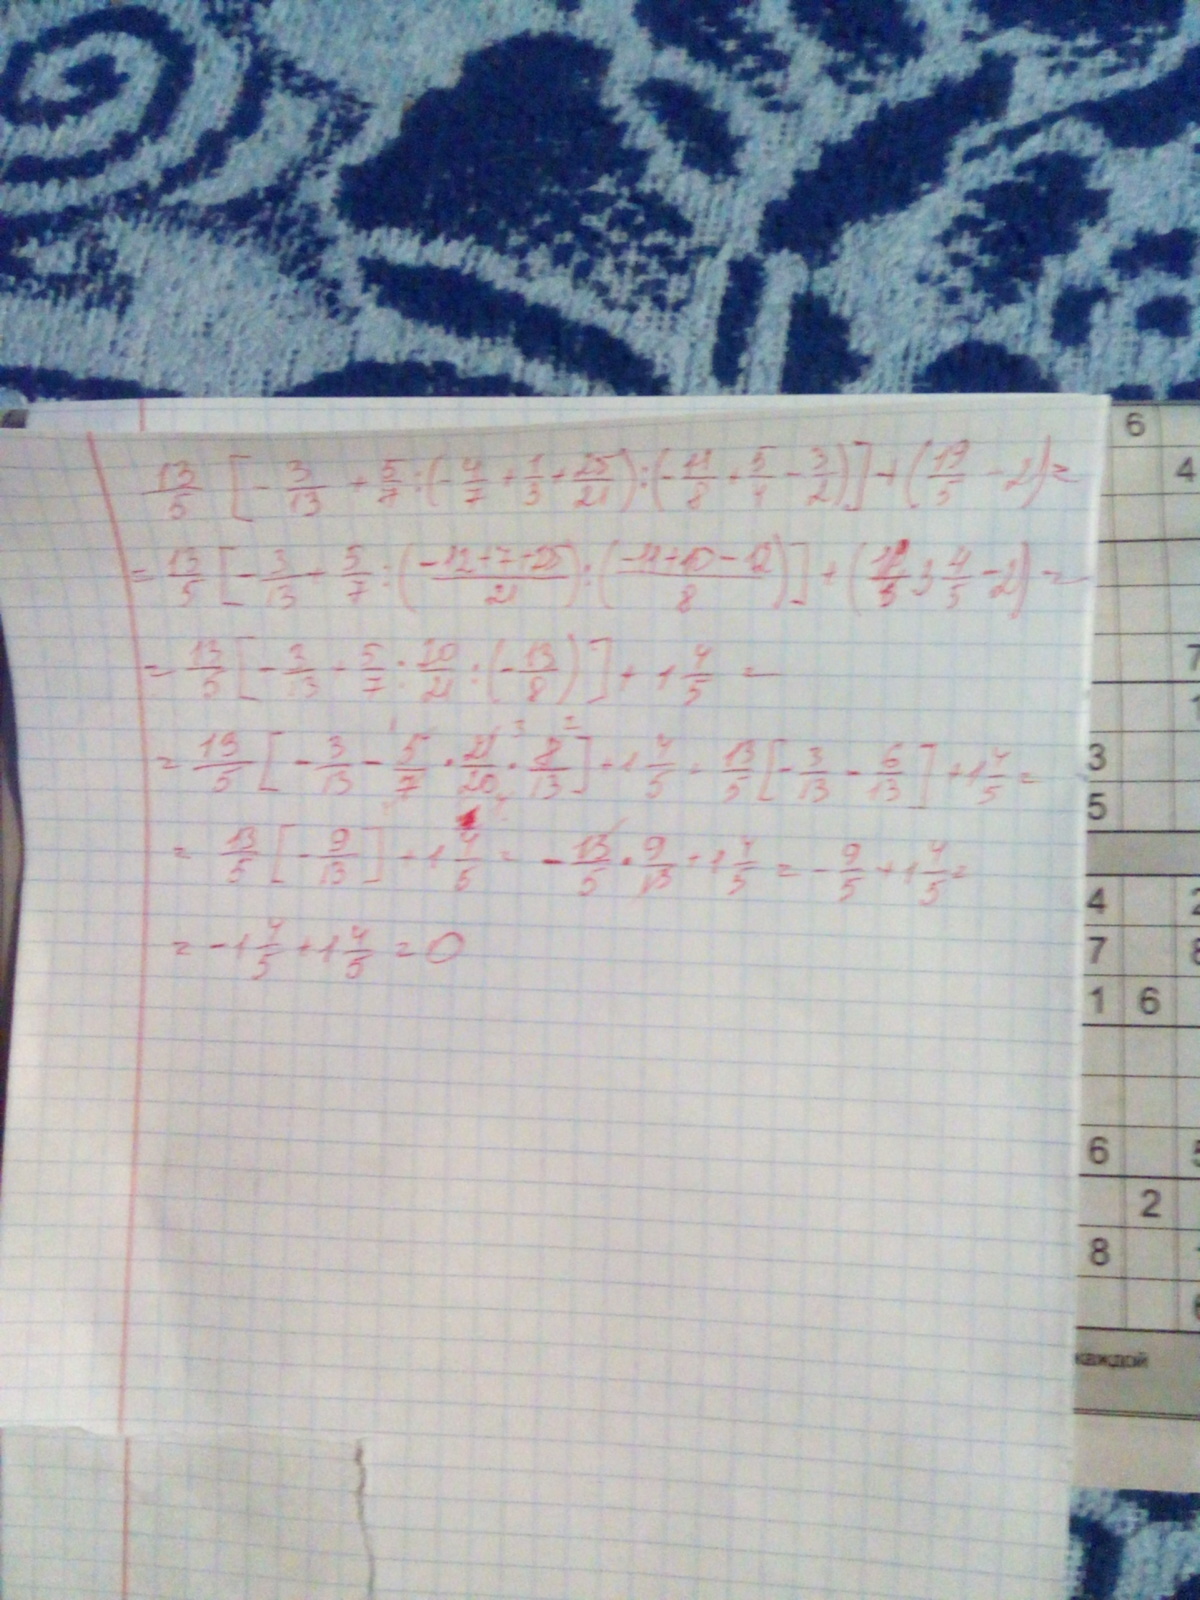 13/5 [-3/13 + 5/7 : (-4/7 + 1/3 + 25/21) : (-11/8 + 5/4 - 3/2)] + (19/5 - 2) =
= 13/5 [-3/13 + 5/7 : (-12+7+25)/21 : (-11+10-12)/8] + (3 4/5 - 2) =
= 13/5 [-3/13 + 5/7 : 20/21 : (-13/8)] + 1 4/5 =
= 13/5 [-3/13 - 5/7 · 21/20 · 8/13] + 1 4/5 = 13/5 [-3/13 - 6/13] + 1 4/5 =
= 13/5 [-9/13] + 1 4/5 = -13/5 · 9/13 + 1 4/5 = -9/5 + 1 4/5 =
= -1 4/5 + 1 4/5 = 0
6
4
7
1
3
5
4 2
7 8
1 6
6 5
2
8
6
каждой